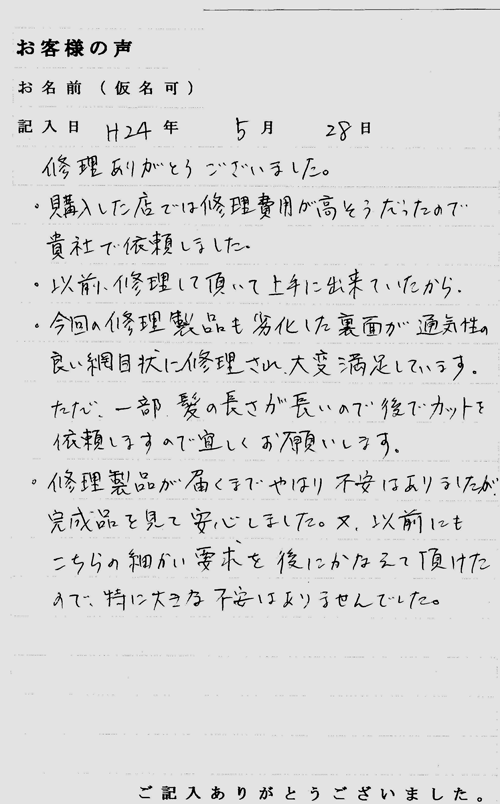 お客様の声
お名前(仮名可)
記入日 H24年 5月 28日
修理ありがとうございました。
・購入した店では修理費用が高そうだったので
貴社で依頼しました。
・以前、修理して頂いて上手に出来ていたから、
・今回の修理製品も劣化した裏面が通気性の
良い網目状に修理され、大変満足しています。
ただ、一部、髪の長さが長いので後でカットを
依頼しますので宜しくお願いします。
・修理製品が届くまでやはり不安はありましたが、
完成品を見て安心しました。又、以前にも
こちらの細かい要求を後にかなえて頂けた
ので、特に大きな不安はありませんでした。
ご記入ありがとうございました。